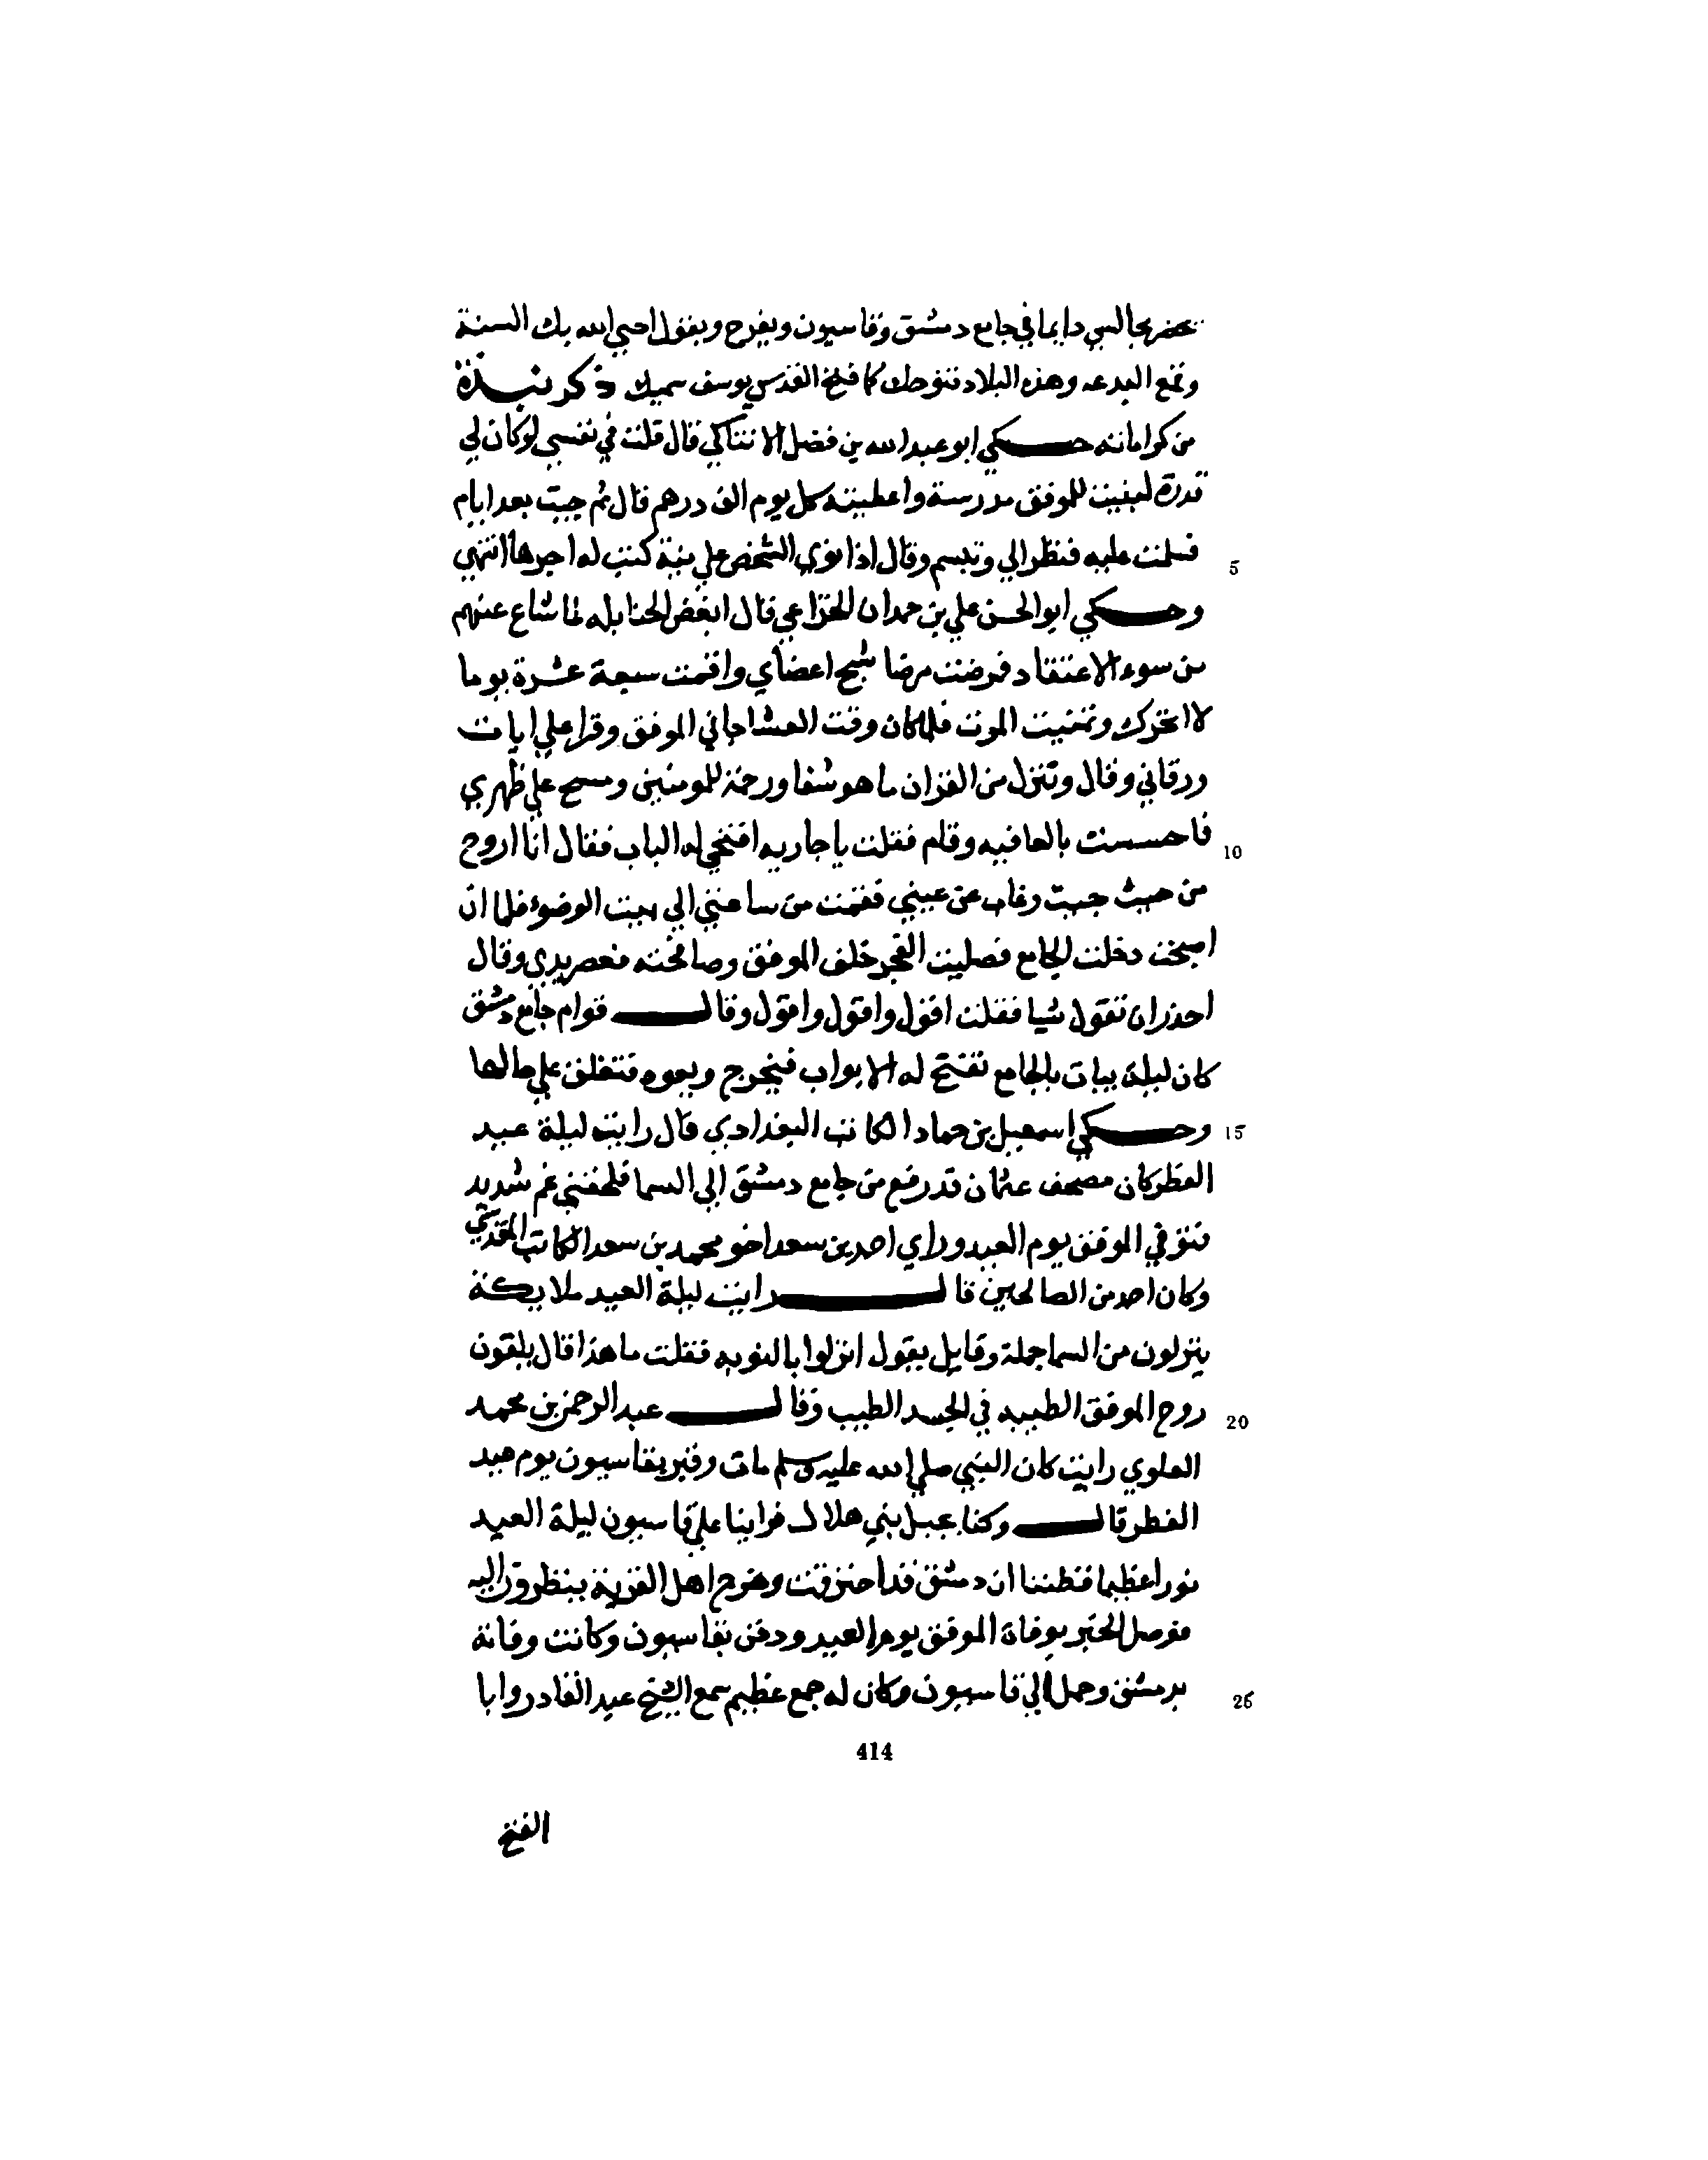 يحضر مجالسي دايما في جامع دمشق وقاسيون ويفرح ويقول احيي الله بك السنة
وقمع البدعه وهذه البلاد فتوحك كما فتح القدس يوسف سميك ذكر نبذة
من كراماته حكي ابو عبد الله بن فضل الا قال قلت في نفسي لو كان لي
قدرة لبنيت للموفق مدرسة واعطيته كل يوم الف درهم قال ثم جيت بعد ايام
فسلمت عليه فنظر الي وتبسم وقال اذا نوي الشخص علي نية كتب له اجرها انتهي
5
وحكي ابو الحسن علي بن حمدان قال ابغض الحنابله لما شاع عنهم
من سوء الاعتقاد فمرضت مرضا شبح اعضاي واقمت سبعة عشرة يوما
لا اتحرك وتمنيت الموت فلما كان وقت العشا جاني الموفق وقرا علي ايات
ورقاني وقال وتنزل من القران ما هو شفا ورحمة للمومنين ومسح علي ظهري
فاحسست بالعافيه وقام فقلت يا جاريه افتحي له الباب فقال انا اروح
10
من حيث جيت وغاب عن عيني فقمت من ساعتي الي بيت الوضوء فلما ان
اصبحت دخلت الجامع فصليت الفجر خلف الموفق وصافحته فعصر يدي وقال
احذر ان تقول شيا فقلت اقول واقول واقول وقال قوام جامع دمشق
كان ليلة يبات بالجامع تفتح له الابواب فيخرج ويعود فتغلق علي حالها
وحكي اسمعيل بن حماد الكاتب البغدادي قال رايت ليلة عيد
15
الفطر كان مصحف عثمان قد رفع من جامع دمشق الي السما فلحقني غم شديد
فتوفي الموفق يوم العيد وراي احمد بن سعد اخو محمد بن سعد الكاتب المقدسي
وكان احمد من الصالحين قال رايت ليلة العيد ملايكة
ينزلون من السما جملة وقايل يقول انزلوا بالنوبه فقلت ما هذا قال يلقون
روح الموفق الطيبه في الجسد الطيب وقال عبد الرحمن بن محمد
20
العلوي رايت كان النبي صلي الله عليه وسلم مات وقبر بقاسيون يوم عيد
الفطر قال وكنا بجبل بني هلال فراينا علي قاسيون ليلة العيد
نورا عظيما فظننا ان دمشق قد احترقت وخرج اهل القرية ينظرون اليه
فوصل الخبر بوفاة الموفق يوم العيد ودفن بقاسيون وكانت وفاته
بدمشق وحمل الي قاسيون وكان له جمع عظيم سمع الشيخ عبد القادر وابا
25
414
الفتح